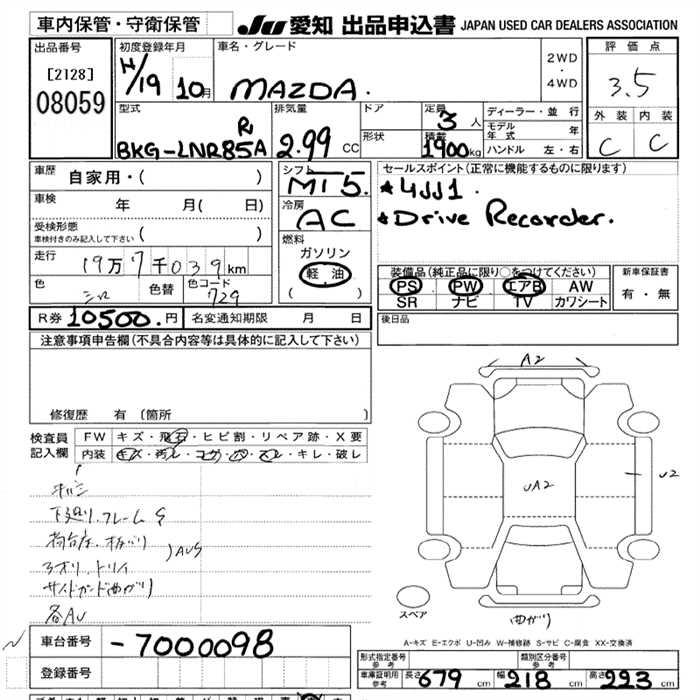 車内保管・守衛保管
JU 愛知 出品申込書 JAPAN USED CAR DEALERS ASSOCIATION
出品番号
[2128]
08059
初度登録年月
H/19 10月
車名・グレード
MAZDA.
2WD
・
4WD
評価点
3.5
外装 内装
C C
型式
BKG-LNR85A
R
排気量
2.99 CC
ドア
形状
定員
3人
積載
1900kg
ディーラー・並行
モデル年式 年
ハンドル 左・右
車歴
自家用・( )
車検 年 月( 日)
受検形態
車検付きのみ記入して下さい ( )
走行
19万7千039km
色
シロ
色替
色コード
729
シフト
MT5.
冷房
AC
燃料
ガソリン
軽油
( )
セールスポイント(正常に機能するものに限ります)
*4JJ1.
*Drive Recorder.
装備品(純正品に限り○をつけてください)
PS PW エアB AW
SR ナビ TV カワシート
新車保証書
有・無
R券 10500.円
名変通知期限 月 日
後日品
注意事項申告欄(不具合内容等は具体的に記入して下さい)
修復歴 有(箇所 )
検査員
記入欄
FW キズ・飛石・ヒビ割・リペア跡・X要
内装 キズ・汚レ・コゲ・穴・スレ・キレ・破レ
下廻り.フレームS
荷台左.板バリ
AUS
サイドガード曲がり
各AU
A2
UA2
U2
曲がり
スペア
A-キズ E-エクボ U-凹み W-補修跡 S-サビ C-腐食 XX-交換済
車台番号
-7000098
登録番号
形式指定番号
参考
類別区分番号
参考
車庫証明用
参考
長さ 679 cm 幅 218 cm 高さ 223 cm